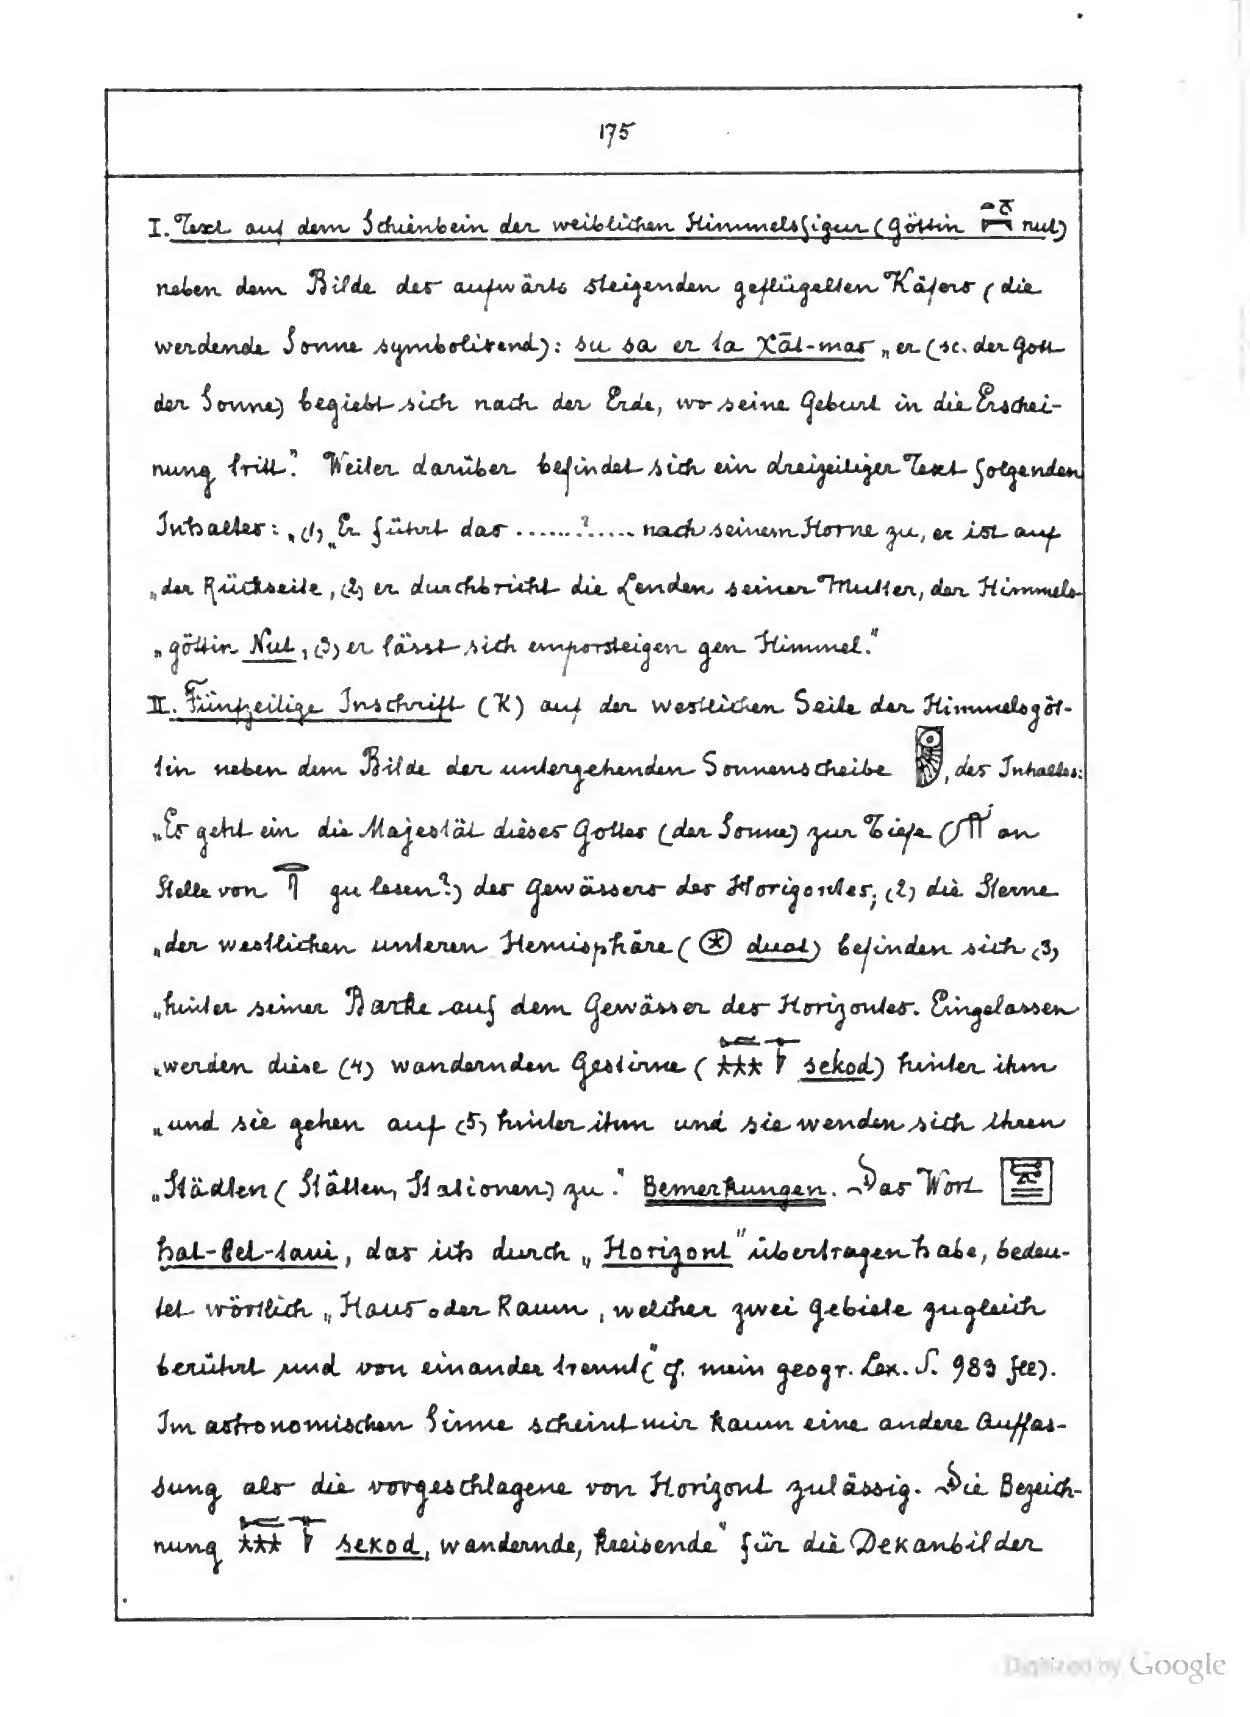 175
I. Text auf dem Schienbein der weiblichen Himmelsfigur (Göttin nut)
neben dem Bilde des aufwärts steigenden geflügelten Käfers (die
werdende Sonne symbolisirend): su sa er ta χāt-mas „er (sc. der Gott
der Sonne) begiebt sich nach der Erde, wo seine Geburt in die Erschei-
nung tritt." Weiter darüber befindet sich ein dreizeiliger Text folgenden
Inhaltes: „(1) „Er führt das ......?..... nach seinem Horne zu, er ist auf
„der Rückseite, (2) er durchbricht die Lenden seiner Mutter, der Himmels-
„göttin Nut, (3) er lässt sich emporsteigen gen Himmel."
II. Fünfzeilige Inschrift (K) auf der westlichen Seite der Himmelsgöt-
tin neben dem Bilde der untergehenden Sonnenscheibe , des Inhaltes:
„Es geht ein die Majestät dieses Gottes (der Sonne) zur Tiefe ( an
Stelle von zu lesen?) des Gewässers des Horizontes; (2) die Sterne
„der westlichen unteren Hemisphäre ( duat) befinden sich (3)
„hinter seiner Barke auf dem Gewässer des Horizontes. Eingelassen
„werden diese (4) wandernden Gestirne ( sekod) hinter ihm
„und sie gehen auf (5) hinter ihm und sie wenden sich ihren
„Städten (Stätten, Stationen) zu." Bemerkungen. Das Wort
hat-bet-taui, das ich durch „Horizont" übertragen habe, bedeu-
tet wörtlich „Haus oder Raum, welcher zwei Gebiete zugleich
berührt und von einander trennt" (cf. mein geogr. Lex. S. 983 fll).
Im astronomischen Sinne scheint mir kaum eine andere Auffas-
sung als die vorgeschlagene von Horizont zulässig. Die Bezeich-
nung sekod, wandernde, kreisende" für die Dekanbilder
Digitized by Google